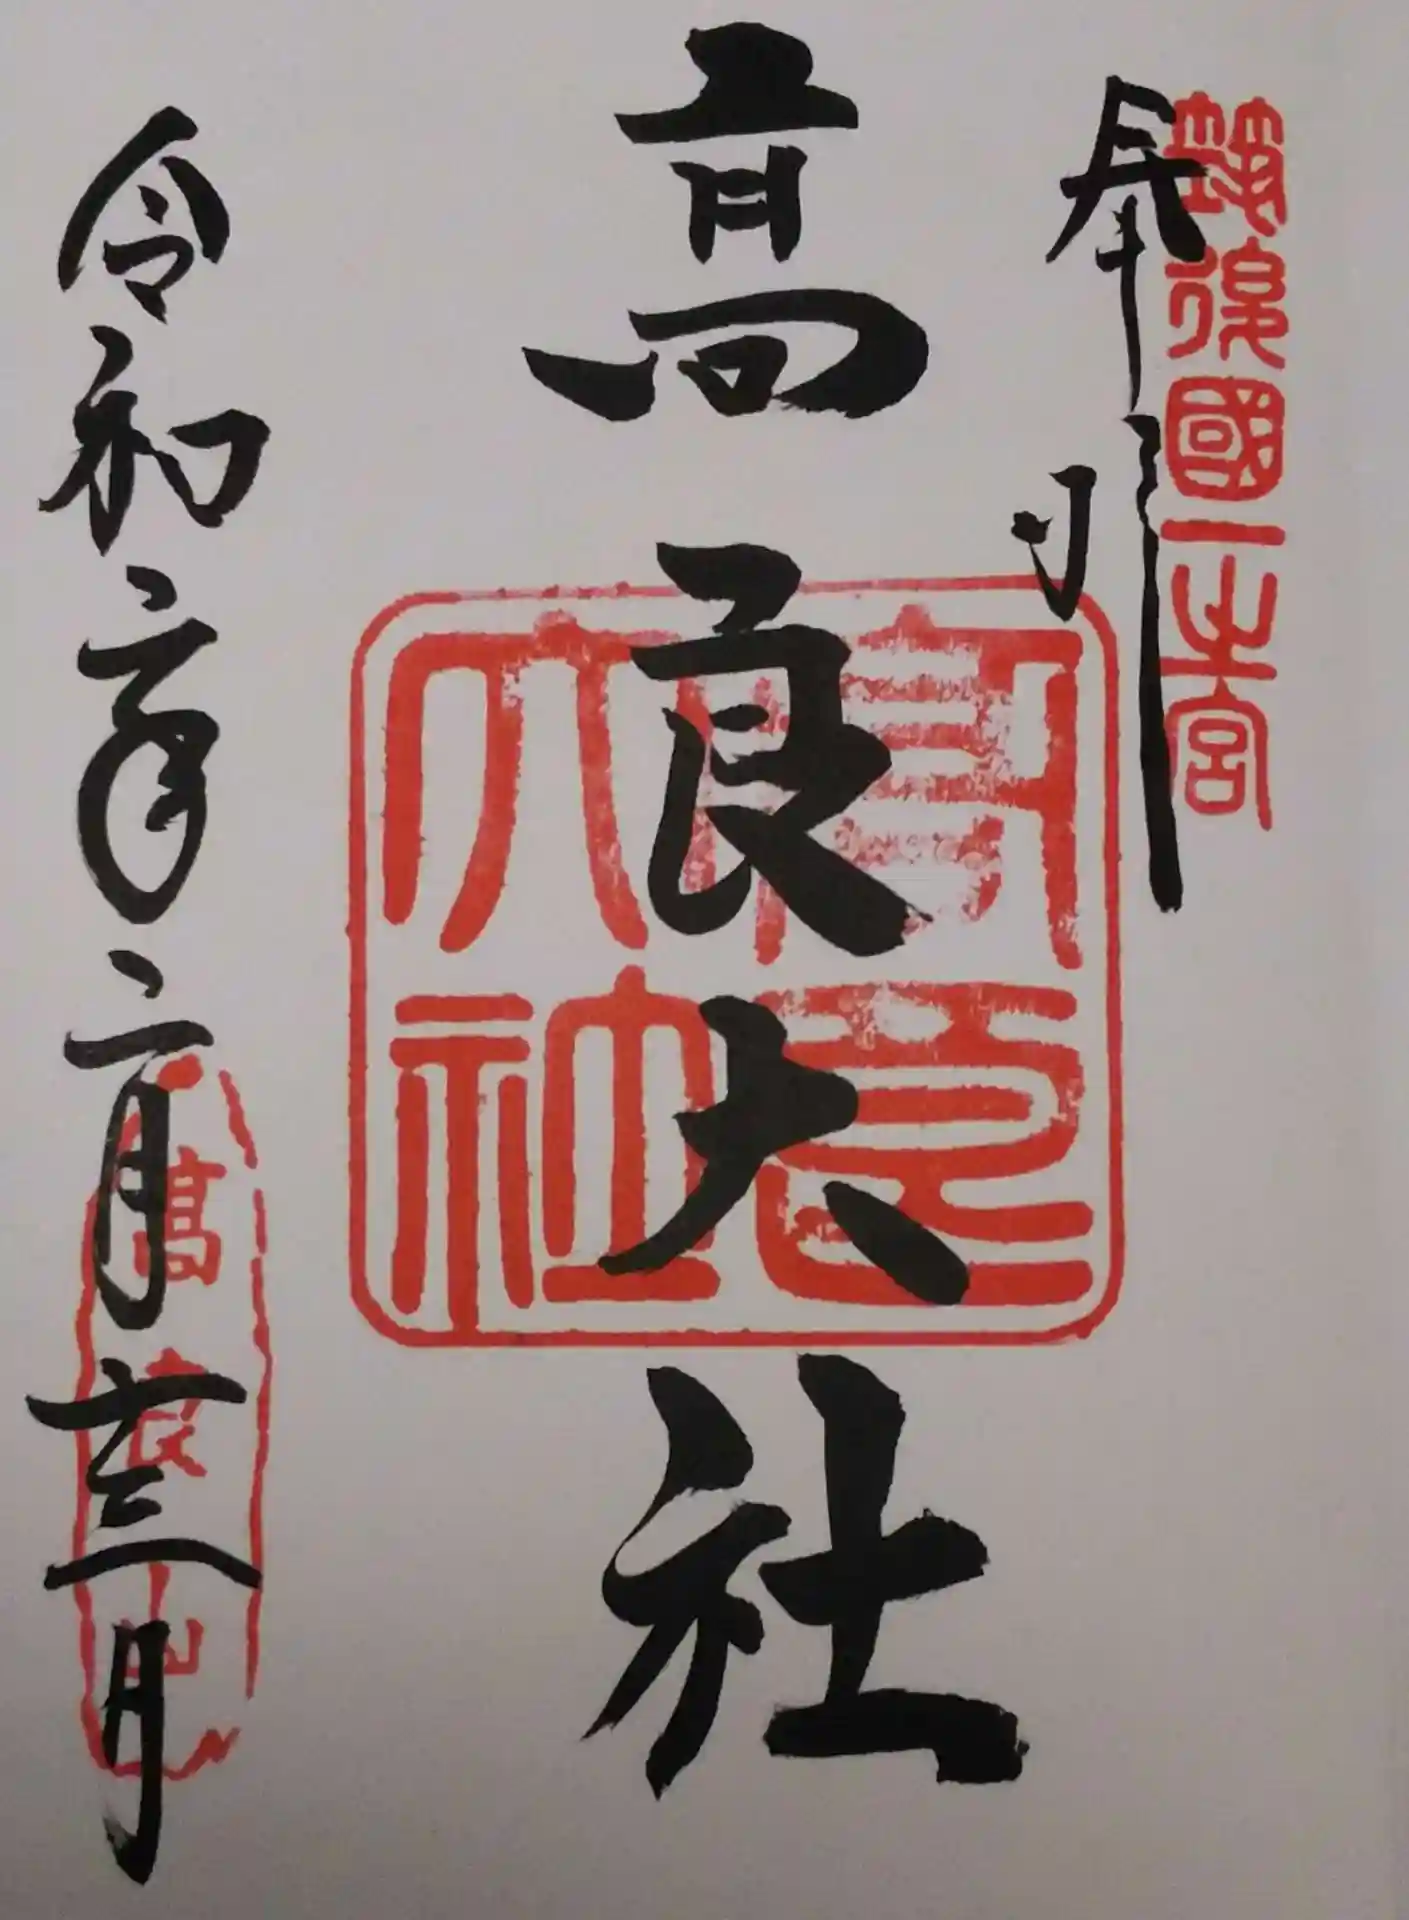 筑後國一之宮
奉拝
高良大社
高良大社
令和二年二月十三日
高良山